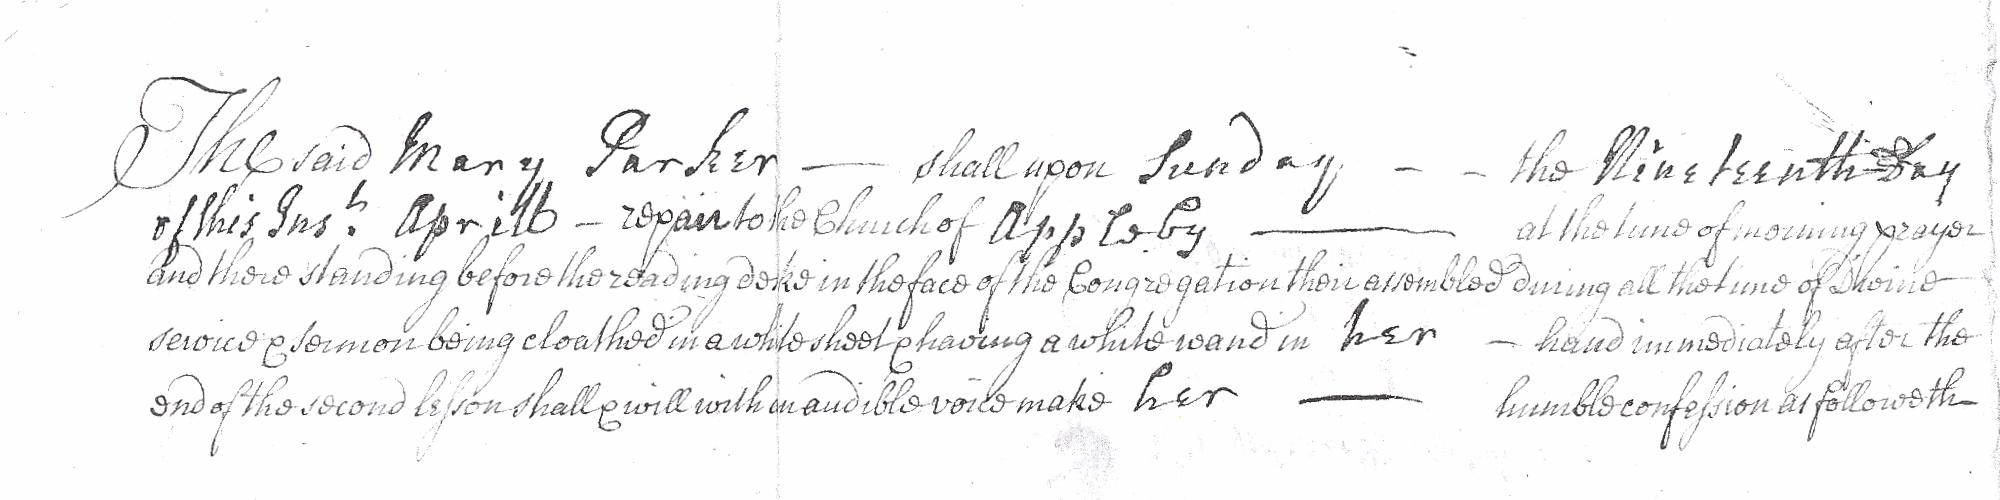 The said Mary Parker — shall upon Sunday - - the Nineteenth Day
of this Inst. Aprill - repair to the Church of Appleby — at the time of morning prayer
and there standing before the reading deske in the face of the Congregation then assembled during all the time of Divine
service & sermon being cloathed in a white sheet & having a white wand in her - hand immediately after the
end of the second lesson shall & will with an audible voice make her — humble confession as followeth